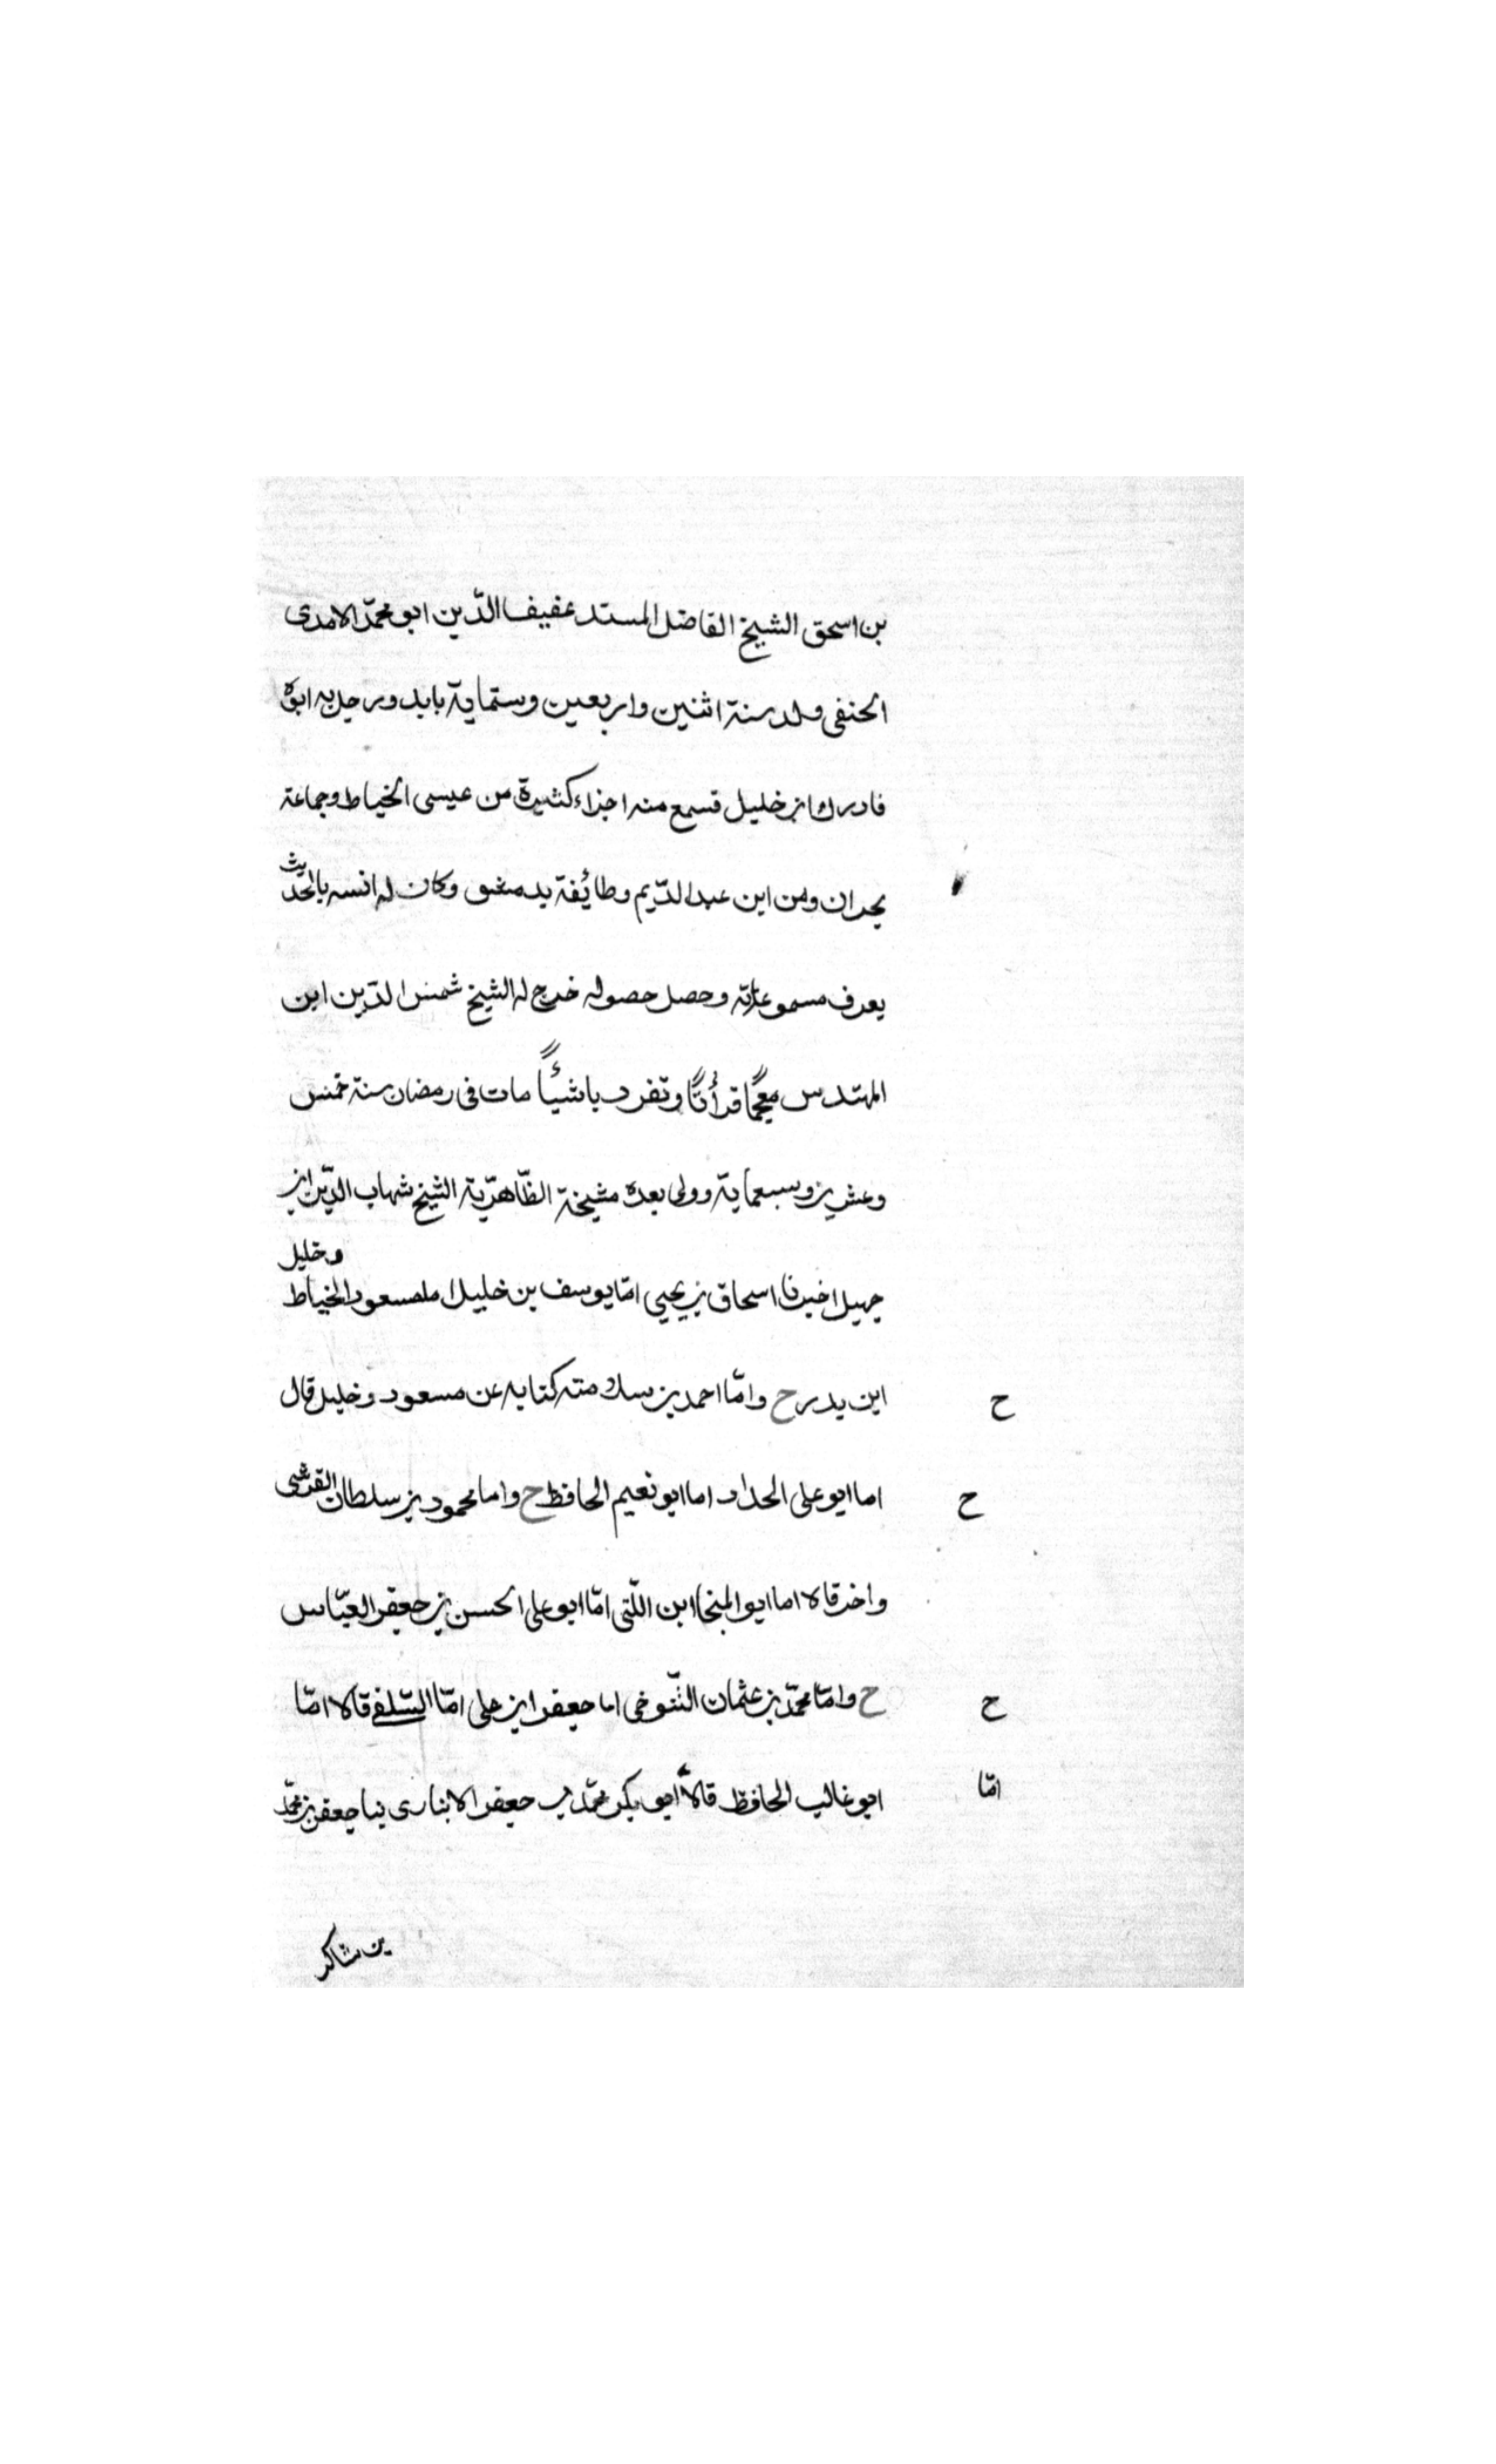 بن اسحق الشيخ القاضل المستد عفيف الدّين ابو محمّد الامدى
الحنفى ولد سنة اثنين واربعين وستماية بابد ورحل به ابوه
فادرك ابن خليل قسمع منه اجزاء كثيرة من عيسى الخياط وجماعة
بحران ومن ابن عبد الدّيم وطائفة بدمشق وكان له انسه بالحديث
يعرف مسموعاته وحصل حصوله خرج له الشيخ شمس الدّين ابن
المهتدس معجمًا قرأتًا وتفرد باشيئًا مات فى رمضان سنة خمس
وعشرين وسبعماية وولى بعده مشيخة الظّاهريّة الشيخ شهاب الدّين ابن
جهبل اخبرنا اسحاق بن يحيى امّا يوسف بن خليل اما مسعود الخياط
وخليل
ابن بدر ح وامّا احمد بن سلامته كتابه عن مسعود وخليل قال
ح
اما ابو على الحداد اما ابو نعيم الحافظ ح واما محمود بن سلطان القرشى
ح
واخر قالا اما ابو المنجا ابن اللّتى امّا ابو على الحسن بن جعفر العبّاس
ح وامّا محمّد بن عثمان التّنوخى اما جعفر ابن على امّا السّلفى قالا امّا
ح
ابو غالب الحافظ قالا ابو بكر محمّد بن جعفر الانبارى نبا جعفر بن محمّد
امّا
بن شاكر